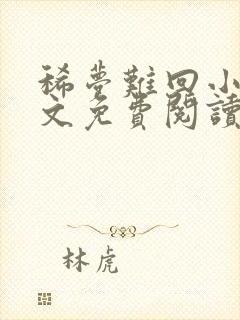 稀夢難回小
文免費閱讀
林虎